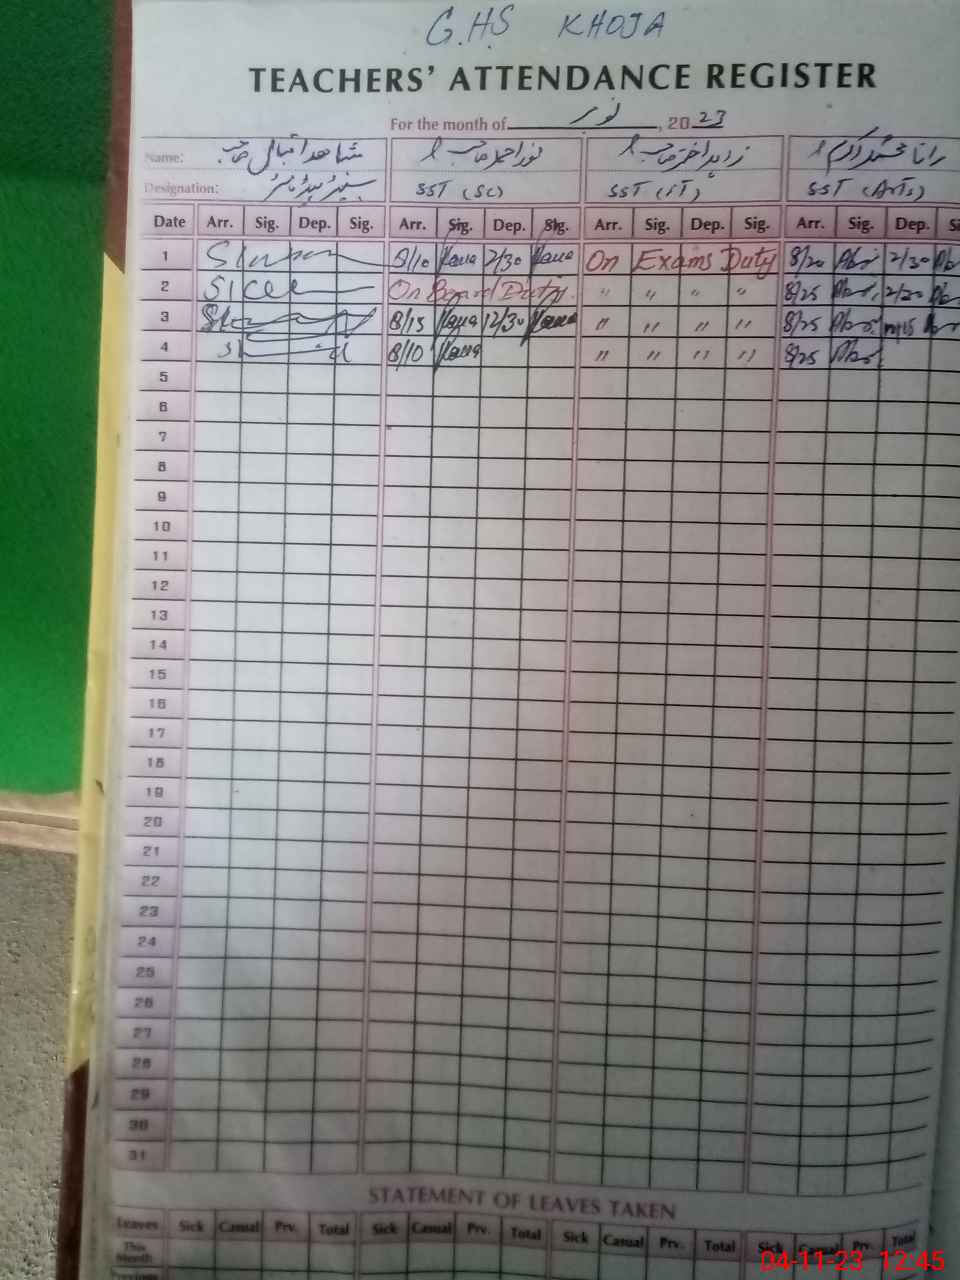 G.H.S KHOJA
TEACHERS' ATTENDANCE REGISTER
For the month of نومبر, 2023
Name: شاهد اقبال صاحب نور احمد صاحب زاہد اختر صاحب رانا محمد اکرم
Designation: سینئر ہیڈ ماسٹر SST (SC) SST (IT) SST (Arts)
Date Arr. Sig. Dep. Sig. Arr. Sig. Dep. Sig. Arr. Sig. Dep. Sig. Arr. Sig. Dep.
1 8/10 2/30 On Exams Duty 8/20 2/30
2 On Board Duty. " " " " 8/25 2/30
3 8/15 12/30 " " " " 8/25
4 8/10 " " " " 8/25
5
6
7
8
9
10
11
12
13
14
15
16
17
18
19
20
21
22
23
24
25
26
27
28
29
30
31
STATEMENT OF LEAVES TAKEN
Leaves Sick Casual Prv. Total Sick Casual Prv. Total Sick Casual Prv. Total Sick Casual Prv. Total
This Month
04-11-23 12:45